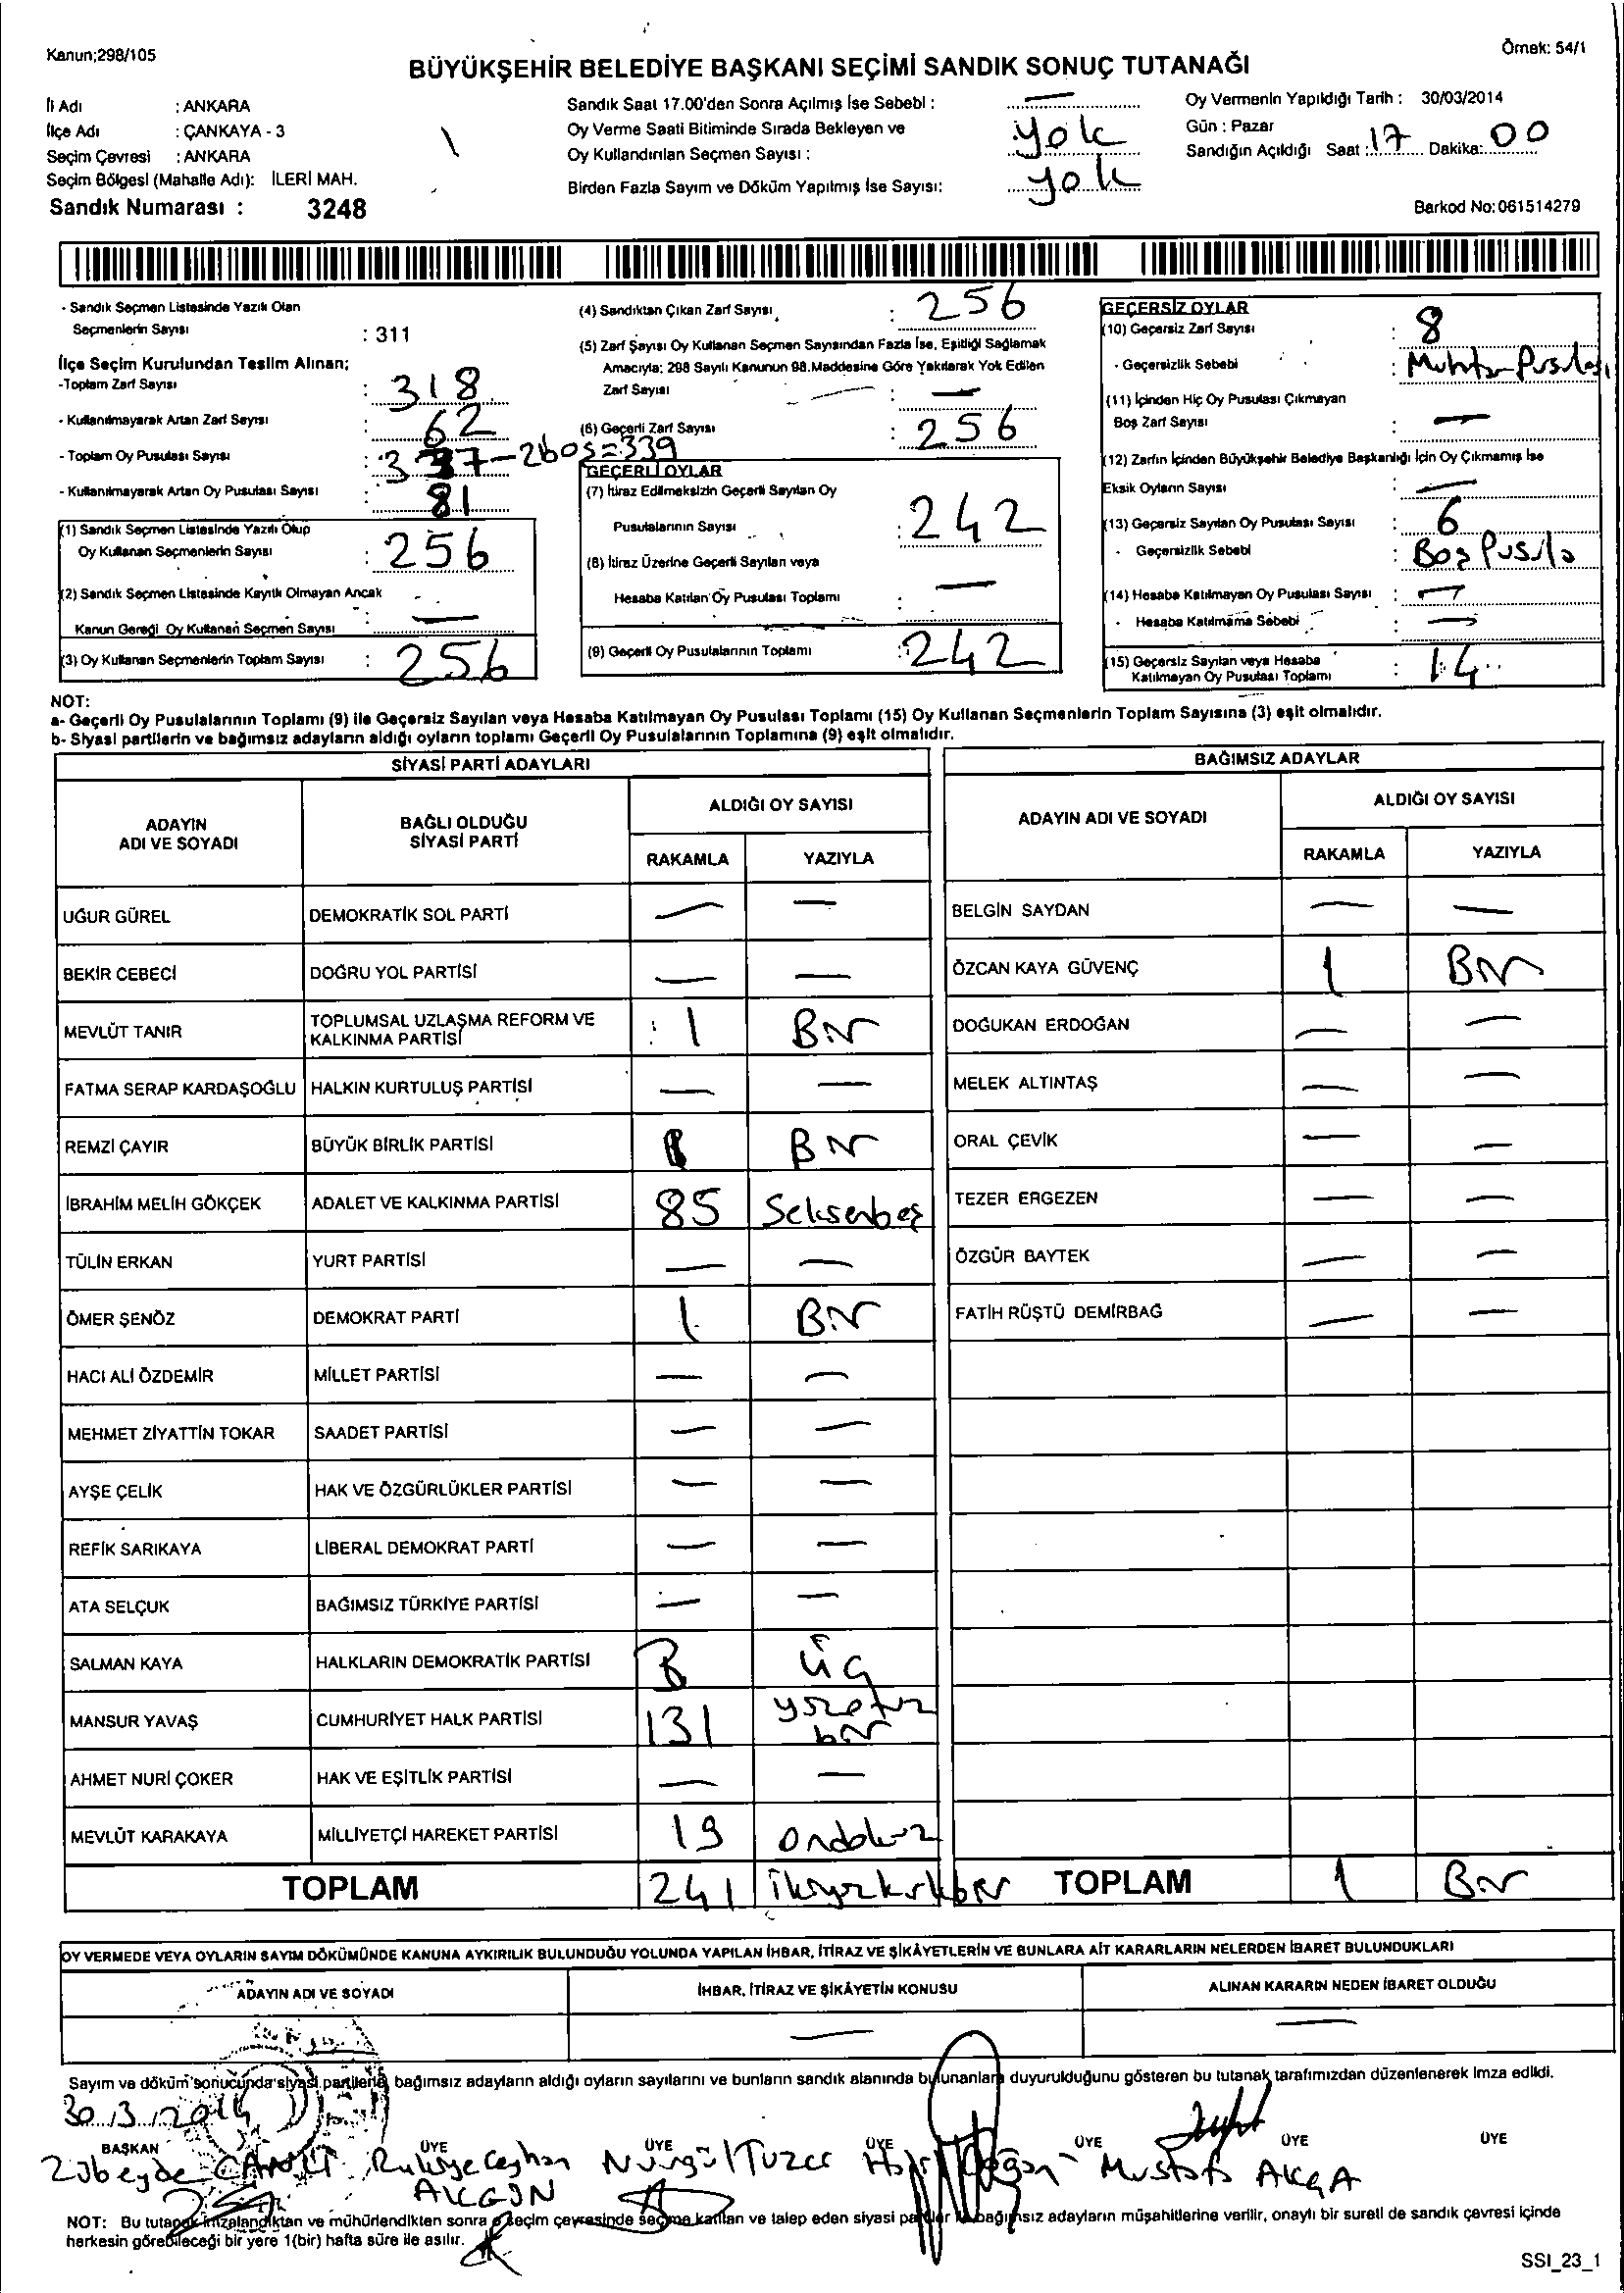 Kanun;298/105
Örnek: 54/1
BÜYÜKŞEHİR BELEDİYE BAŞKANI SEÇİMİ SANDIK SONUÇ TUTANAĞI
İl Adı : ANKARA
İlçe Adı : ÇANKAYA - 3
Seçim Çevresi : ANKARA
Seçim Bölgesi (Mahalle Adı): İLERİ MAH.
Sandık Numarası : 3248
Sandık Saat 17.00'den Sonra Açılmış İse Sebebi : —
Oy Verme Saati Bitiminde Sırada Bekleyen ve
Oy Kullandırılan Seçmen Sayısı : yok
Birden Fazla Sayım ve Döküm Yapılmış İse Sayısı: yok
Oy Vermenin Yapıldığı Tarih : 30/03/2014
Gün : Pazar
Sandığın Açıldığı Saat : 17 Dakika: 00
Barkod No: 061514279
- Sandık Seçmen Listesinde Yazılı Olan
Seçmenlerin Sayısı : 311
İlçe Seçim Kurulundan Teslim Alınan;
-Toplam Zarf Sayısı : 318
- Kullanılmayarak Artan Zarf Sayısı : 62
- Toplam Oy Pusulası Sayısı : 337-2boş=339
- Kullanılmayarak Artan Oy Pusulası Sayısı : 81
(1) Sandık Seçmen Listesinde Yazılı Olup
Oy Kullanan Seçmenlerin Sayısı : 256
(2) Sandık Seçmen Listesinde Kayıtlı Olmayan Ancak
Kanun Gereği Oy Kullanan Seçmen Sayısı —
(3) Oy Kullanan Seçmenlerin Toplam Sayısı : 256
(4) Sandıktan Çıkan Zarf Sayısı : 256
(5) Zarf Sayısı Oy Kullanan Seçmen Sayısından Fazla İse, Eşitliği Sağlamak
Amacıyla; 298 Sayılı Kanunun 98.Maddesine Göre Yakılarak Yok Edilen
Zarf Sayısı : —
(6) Geçerli Zarf Sayısı : 256
GEÇERLİ OYLAR
(7) İtiraz Edilmeksizin Geçerli Sayılan Oy
Pusulalarının Sayısı : 242
(8) İtiraz Üzerine Geçerli Sayılan veya
Hesaba Katılan Oy Pusulası Toplamı : —
(9) Geçerli Oy Pusulalarının Toplamı : 242
GEÇERSİZ OYLAR
(10) Geçersiz Zarf Sayısı : 8
- Geçersizlik Sebebi : Muhtar Pusulası
(11) İçinden Hiç Oy Pusulası Çıkmayan
Boş Zarf Sayısı : —
(12) Zarfın İçinden Büyükşehir Belediye Başkanlığı İçin Oy Çıkmamış İse
Eksik Oyların Sayısı : —
(13) Geçersiz Sayılan Oy Pusulası Sayısı : 6
- Geçersizlik Sebebi : Boş Pusula
(14) Hesaba Katılmayan Oy Pusulası Sayısı : —
- Hesaba Katılmama Sebebi : —
(15) Geçersiz Sayılan veya Hesaba
Katılmayan Oy Pusulası Toplamı : 14
NOT:
a- Geçerli Oy Pusulalarının Toplamı (9) ile Geçersiz Sayılan veya Hesaba Katılmayan Oy Pusulası Toplamı (15) Oy Kullanan Seçmenlerin Toplam Sayısına (3) eşit olmalıdır.
b- Siyasi partilerin ve bağımsız adayların aldığı oyların toplamı Geçerli Oy Pusulalarının Toplamına (9) eşit olmalıdır.
SİYASİ PARTİ ADAYLARI
ADAYIN ADI VE SOYADI
BAĞLI OLDUĞU SİYASİ PARTİ
ALDIĞI OY SAYISI
RAKAMLA YAZIYLA
UĞUR GÜREL DEMOKRATİK SOL PARTİ — —
BEKİR CEBECİ DOĞRU YOL PARTİSİ — —
MEVLÜT TANIR TOPLUMSAL UZLAŞMA REFORM VE KALKINMA PARTİSİ 1 Bir
FATMA SERAP KARDAŞOĞLU HALKIN KURTULUŞ PARTİSİ — —
REMZİ ÇAYIR BÜYÜK BİRLİK PARTİSİ 1 Bir
İBRAHİM MELİH GÖKÇEK ADALET VE KALKINMA PARTİSİ 85 Seksenbeş
TÜLİN ERKAN YURT PARTİSİ — —
ÖMER ŞENÖZ DEMOKRAT PARTİ 1 Bir
HACI ALİ ÖZDEMİR MİLLET PARTİSİ — —
MEHMET ZİYATTİN TOKAR SAADET PARTİSİ — —
AYŞE ÇELİK HAK VE ÖZGÜRLÜKLER PARTİSİ — —
REFİK SARIKAYA LİBERAL DEMOKRAT PARTİ — —
ATA SELÇUK BAĞIMSIZ TÜRKİYE PARTİSİ — —
SALMAN KAYA HALKLARIN DEMOKRATİK PARTİSİ 3 üç
MANSUR YAVAŞ CUMHURİYET HALK PARTİSİ 131 yüzotuz bir
AHMET NURİ ÇOKER HAK VE EŞİTLİK PARTİSİ — —
MEVLÜT KARAKAYA MİLLİYETÇİ HAREKET PARTİSİ 19 ondokuz
TOPLAM 241 ikiyüzkırkbir
BAĞIMSIZ ADAYLAR
ADAYIN ADI VE SOYADI
ALDIĞI OY SAYISI
RAKAMLA YAZIYLA
BELGİN SAYDAN — —
ÖZCAN KAYA GÜVENÇ 1 Bir
DOĞUKAN ERDOĞAN — —
MELEK ALTINTAŞ — —
ORAL ÇEVİK — —
TEZER ERGEZEN — —
ÖZGÜR BAYTEK — —
FATİH RÜŞTÜ DEMİRBAĞ — —
TOPLAM 1 Bir
OY VERMEDE VEYA OYLARIN SAYIM DÖKÜMÜNDE KANUNA AYKIRILIK BULUNDUĞU YOLUNDA YAPILAN İHBAR, İTİRAZ VE ŞİKÂYETLERİN VE BUNLARA AİT KARARLARIN NELERDEN İBARET BULUNDUKLARI
ADAYIN ADI VE SOYADI İHBAR, İTİRAZ VE ŞİKÂYETİN KONUSU ALINAN KARARIN NEDEN İBARET OLDUĞU
— —
Sayım ve döküm sonucunda siyasi partilerle, bağımsız adayların aldığı oyların sayılarını ve bunların sandık alanında bulunanlara duyurulduğunu gösteren bu tutanak tarafımızdan düzenlenerek imza edildi.
30.3.2014
BAŞKAN ÜYE ÜYE ÜYE ÜYE ÜYE ÜYE
Zübeyde CANLI Rukiye Ceyhan AKGÜN Nurgül Tuzcu Mustafa AKÇA
NOT: Bu tutanak imzalandıktan ve mühürlendikten sonra o seçim çevresinde seçime katılan ve talep eden siyasi partiler ve bağımsız adayların müşahitlerine verilir, onaylı bir sureti de sandık çevresi içinde
herkesin görebileceği bir yere 1(bir) hafta süre ile asılır.
SSI_23_1